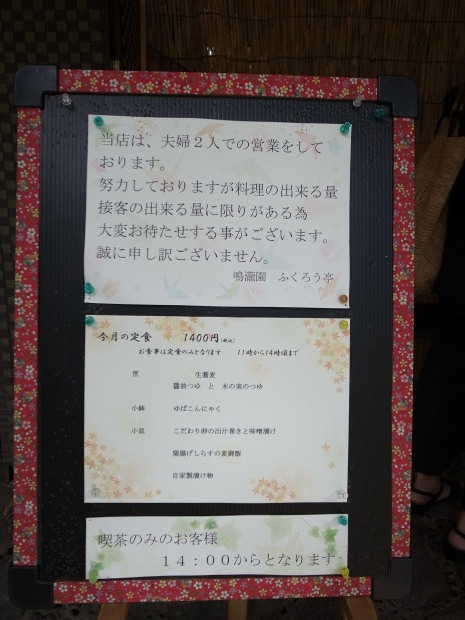 当店は、夫婦２人での営業をして
おります。
努力しておりますが料理の出来る量
接客の出来る量に限りがある為
大変お待たせする事がございます。
誠に申し訳ございません。
鳴瀧園　ふくろう亭
今月の定食　1400円(税込)
お食事は定食のみとなります　11時から14時頃まで
烹　生蕎麦
醤油つゆ　と　木の実のつゆ
小鉢　ゆばこんにゃく
小皿　こだわり卵の出汁巻きと味噌漬け
釜揚げしらすの麦御飯
自家製漬け物
喫茶のみのお客様
１４：００からとなります